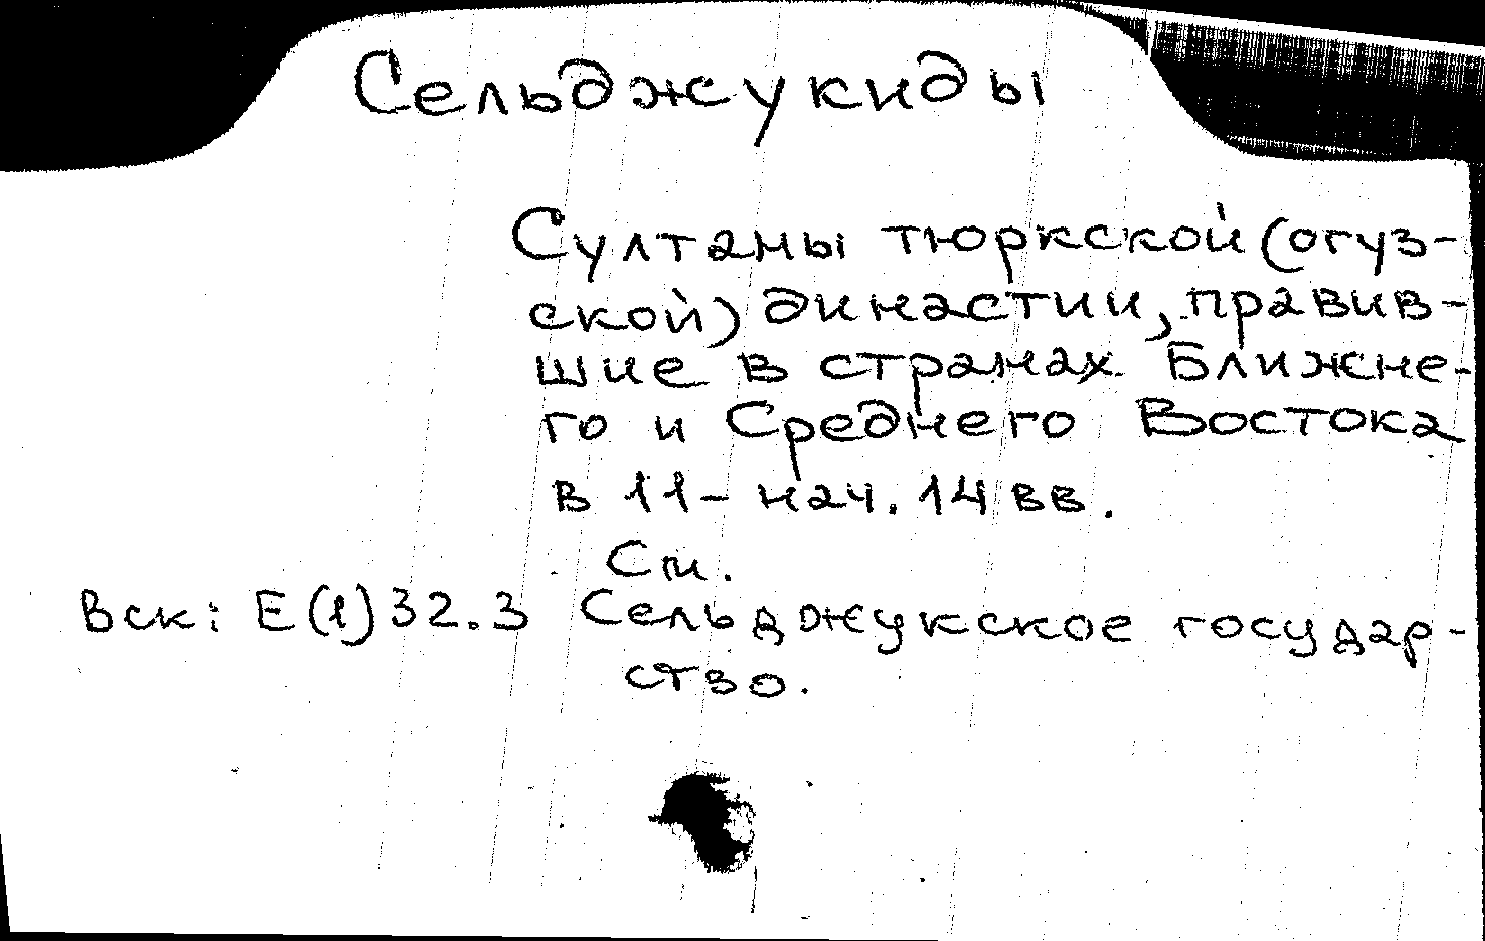 Сельджукиды
Султаны тюркской (огуз-
ской) династии, правив-
шие в странах Ближне-
го и Среднего Востока
в 11- нач. 14 вв.
См.
Вск: Е(1)32.3 Сельджукское государ-
ство.